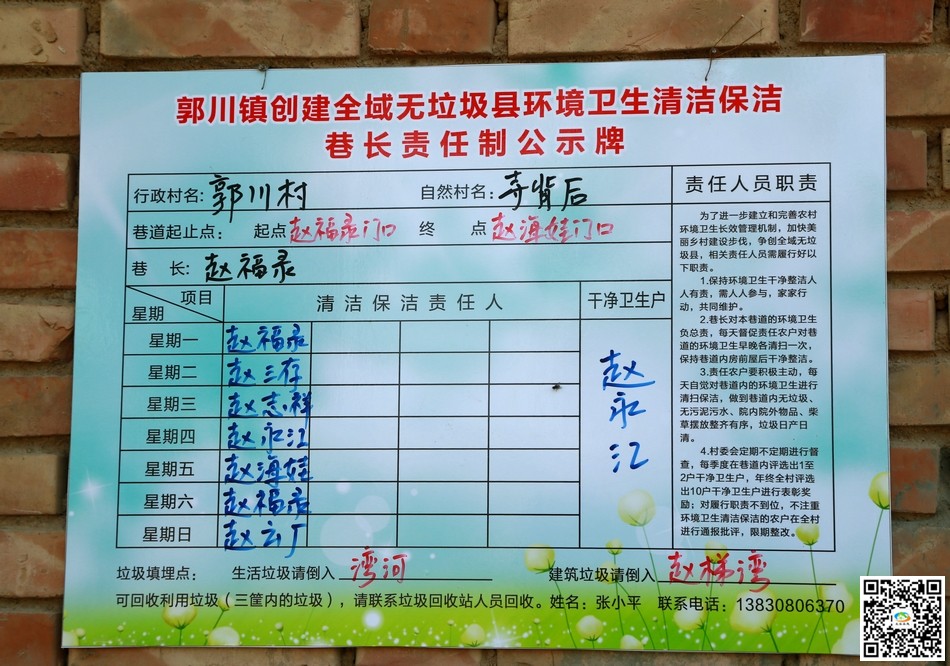 郭川镇创建全域无垃圾县环境卫生清洁保洁
巷长责任制公示牌
行政村名: 郭川村 自然村名: 寺背后
巷道起止点: 起点 赵福录门口 终点 赵海娃门口
巷 长: 赵福录
项目
星期
清洁保洁责任人 干净卫生户
星期一 赵福录
星期二 赵三存
星期三 赵志祥
星期四 赵永江
星期五 赵海娃
星期六 赵福录
星期日 赵云厂
赵永江
责任人员职责
为了进一步建立和完善农村
环境卫生长效管理机制，加快美
丽乡村建设步伐，争创全域无垃
圾县，相关责任人员需履行好以
下职责。
1.保持环境卫生干净整洁人
人有责，需人人参与，家家行
动，共同维护。
2.巷长对本巷道的环境卫生
负总责，每天督促责任农户对巷
道的环境卫生早晚各清扫一次，
保持巷道内房前屋后干净整洁。
3.责任农户要积极主动，每
天自觉对巷道内的环境卫生进行
清扫保洁，做到巷道内无垃圾、
无污泥污水、院内院外物品、柴
草摆放整齐有序，垃圾日产日
清。
4.村委会定期不定期进行督
查，每季度在巷道内评选出1至
2户干净卫生户，年终全村评选
出10户干净卫生户进行表彰奖
励；对履行职责不到位，不注重
环境卫生清洁保洁的农户在全村
进行通报批评，限期整改。
垃圾填埋点: 生活垃圾请倒入 湾河 建筑垃圾请倒入 赵梯湾
可回收利用垃圾（三筐内的垃圾），请联系垃圾回收站人员回收。姓名: 张小平 联系电话: 13830806370